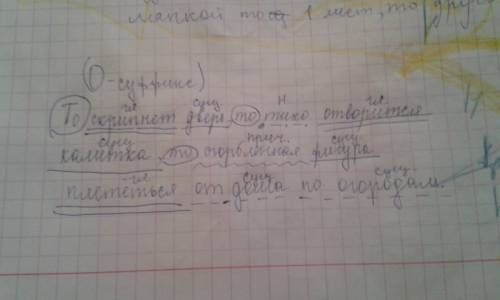 мягкой то 1 мест, то друго
(О-суффикс)
гл. сущ. н гл.
То скрипнет дверь, то тихо отворится
сущ. прич. сущ.
калитка, то сгорбленная фигура
гл. сущ. сущ.
плететься от дома по огородам.